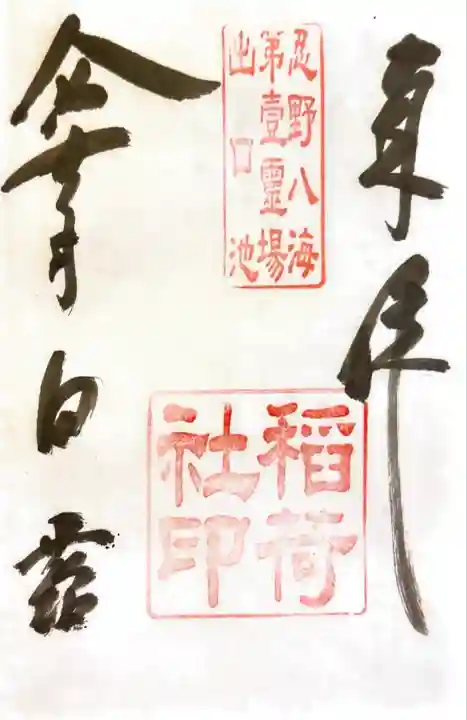 奉拝
忍野八海
第壹靈場
出口池
稻荷
社印
白露